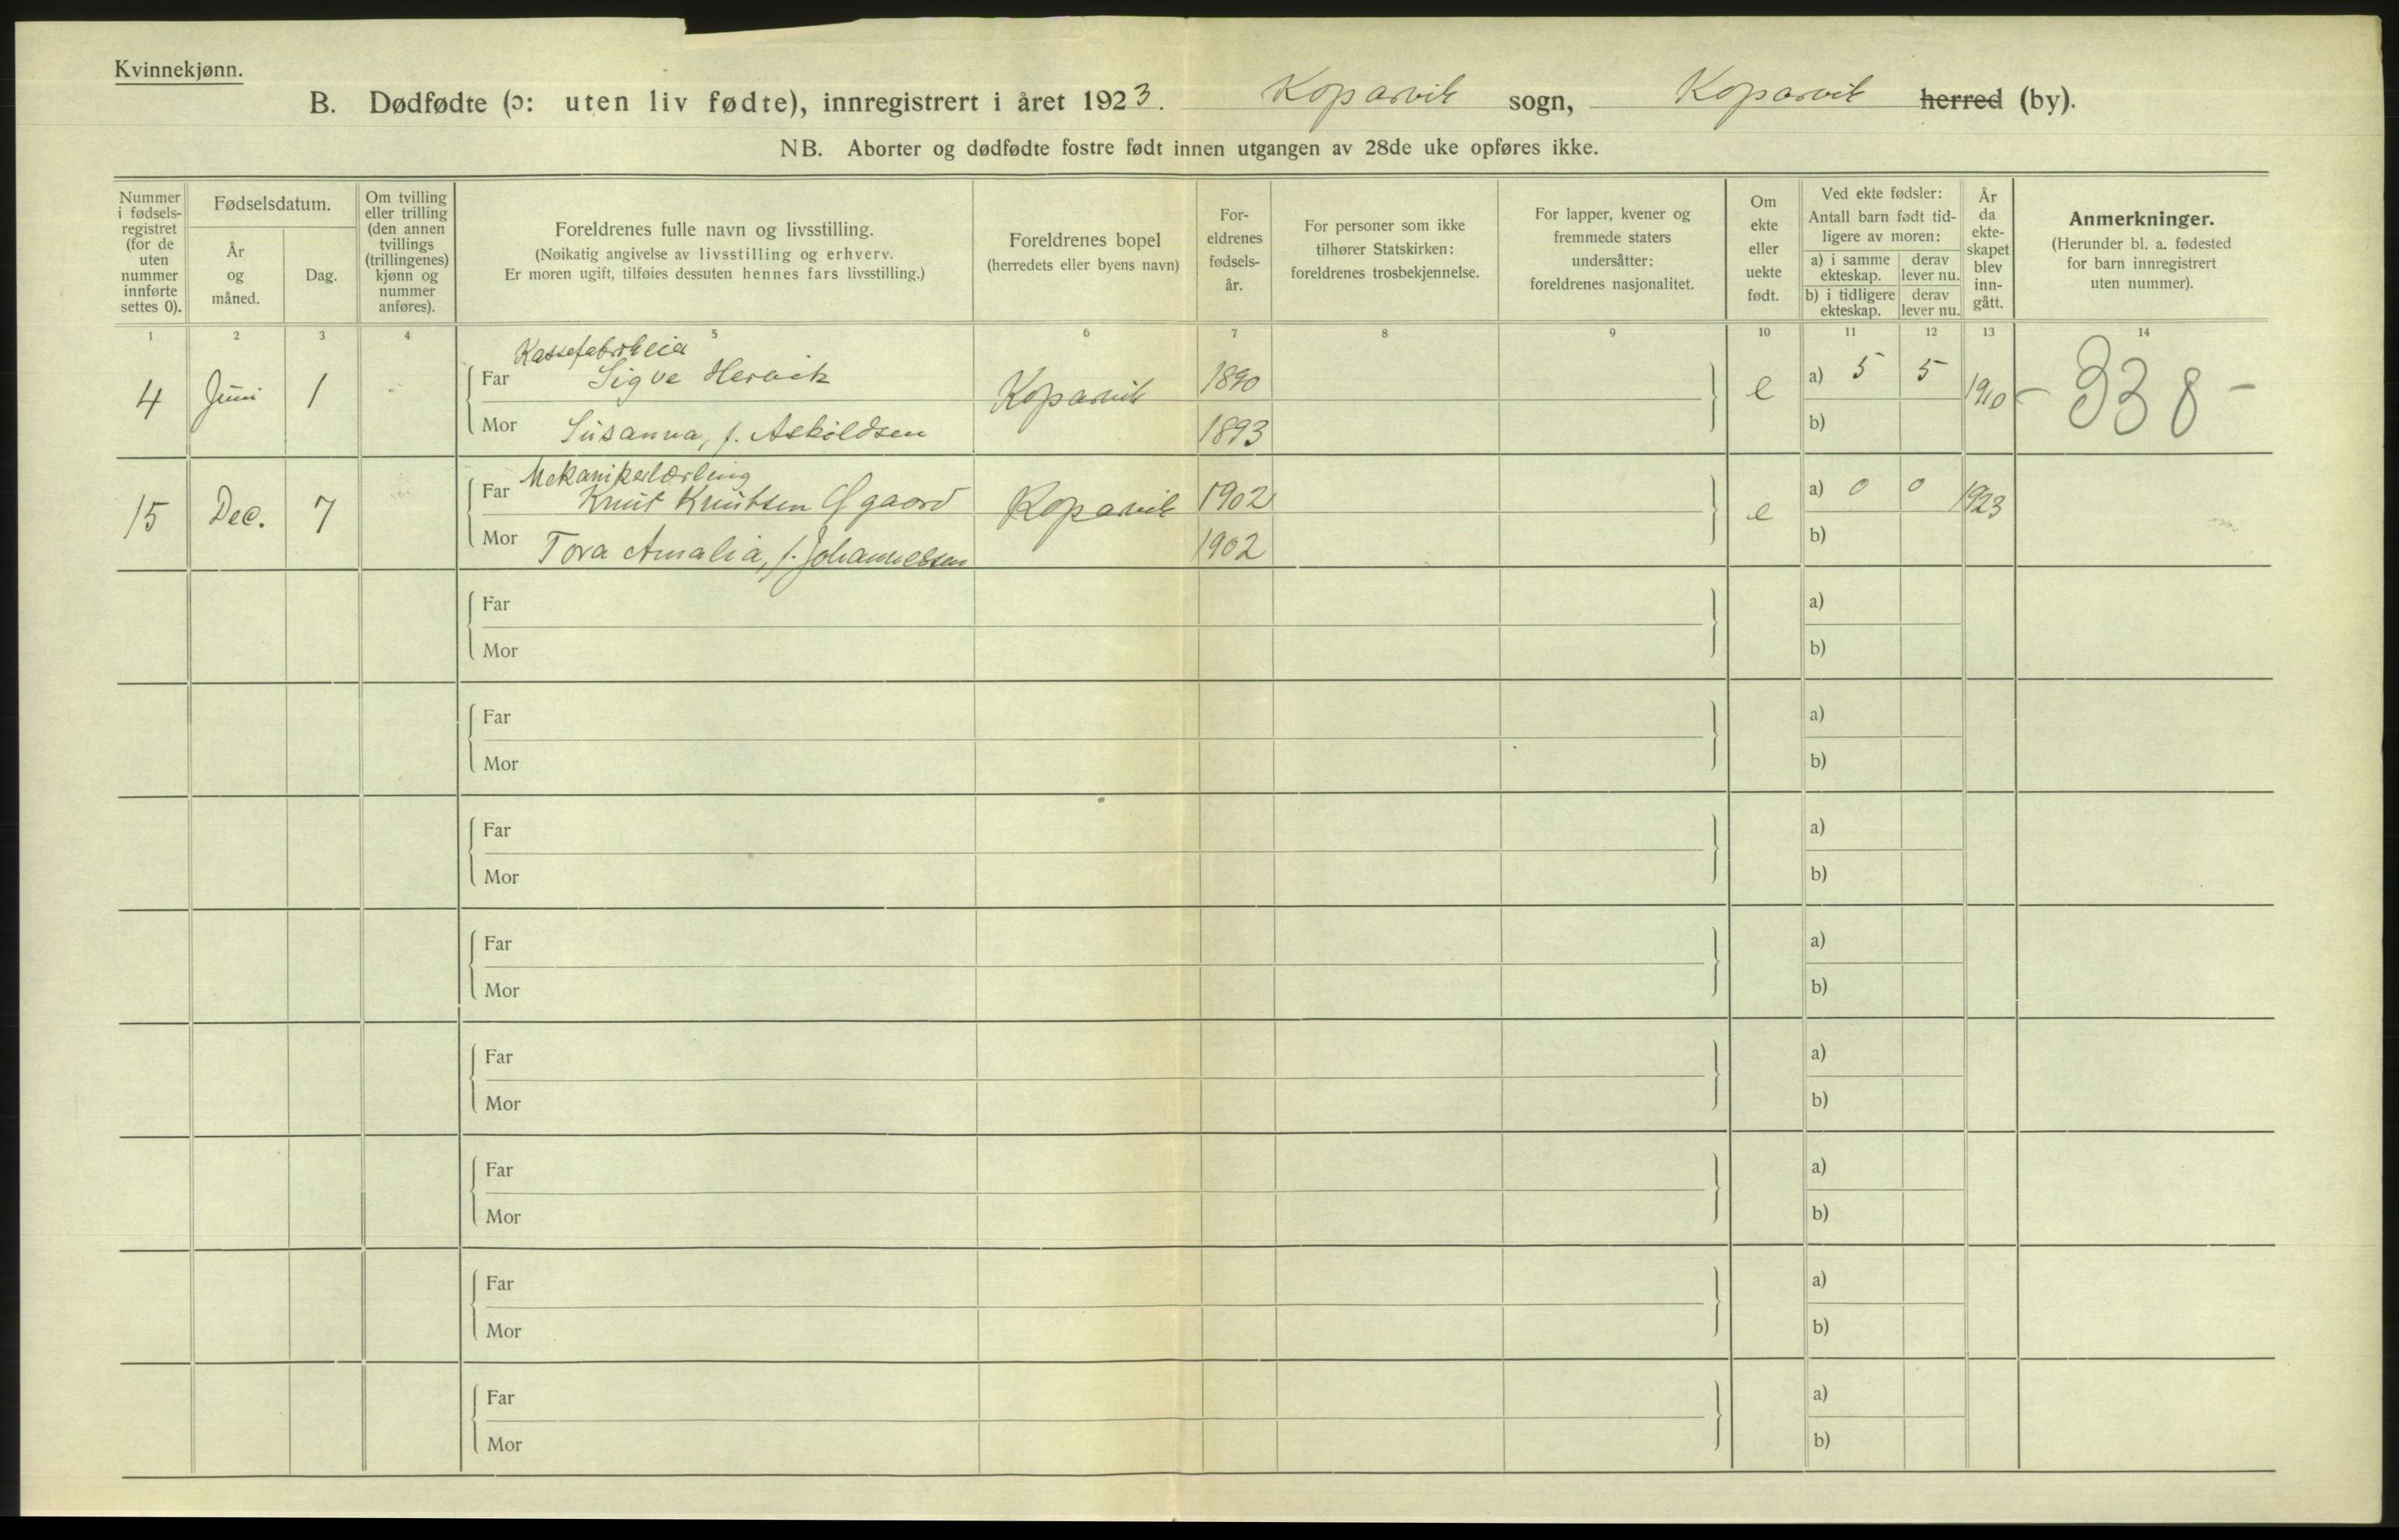 Kvinnekjønn.
B. Dødfødte (ɔ: uten liv fødte), innregistrert i året 1923. Koparvik sogn, Koparvik herred (by).
NB. Aborter og dødfødte fostre født innen utgangen av 28de uke opføres ikke.
Nummer i fødsels-registret (for de uten nummer innførte settes 0).
Fødselsdatum.
År og måned.
Dag.
Om tvilling eller trilling (den annen tvillings (trillingenes) kjønn og nummer anføres).
Foreldrenes fulle navn og livsstilling.
(Nøikatig angivelse av livsstilling og erhverv.
Er moren ugift, tilføies dessuten hennes fars livsstilling.)
Foreldrenes bopel
(herredets eller byens navn)
For-eldrenes fødsels-år.
For personer som ikke tilhører Statskirken: foreldrenes trosbekjennelse.
For lapper, kvener og fremmede staters undersåtter: foreldrenes nasjonalitet.
Om ekte eller uekte født.
Ved ekte fødsler:
Antall barn født tid-ligere av moren:
a) i samme ekteskap. derav lever nu.
b) i tidligere ekteskap. derav lever nu.
År da ekte-skapet blev inn-gått.
Anmerkninger.
(Herunder bl. a. fødested for barn innregistrert uten nummer).
1 2 3 4 5 6 7 8 9 10 11 12 13 14
Kassefabrikeia
4 Juni 1 Far Sigve Hervik Koparvik 1890 e a) 5 5 1910 - 338 -
Mor Susanna, f. Askildsen 1893 b)
Mekanikerlærling
15 Dec. 7 Far Knut Knutsen Ygaard Koparvik 1902 e a) 0 0 1923
Mor Tora Amalia, f. Johannessen 1902 b)
Far a)
Mor b)
Far a)
Mor b)
Far a)
Mor b)
Far a)
Mor b)
Far a)
Mor b)
Far a)
Mor b)
Far a)
Mor b)
Far a)
Mor b)